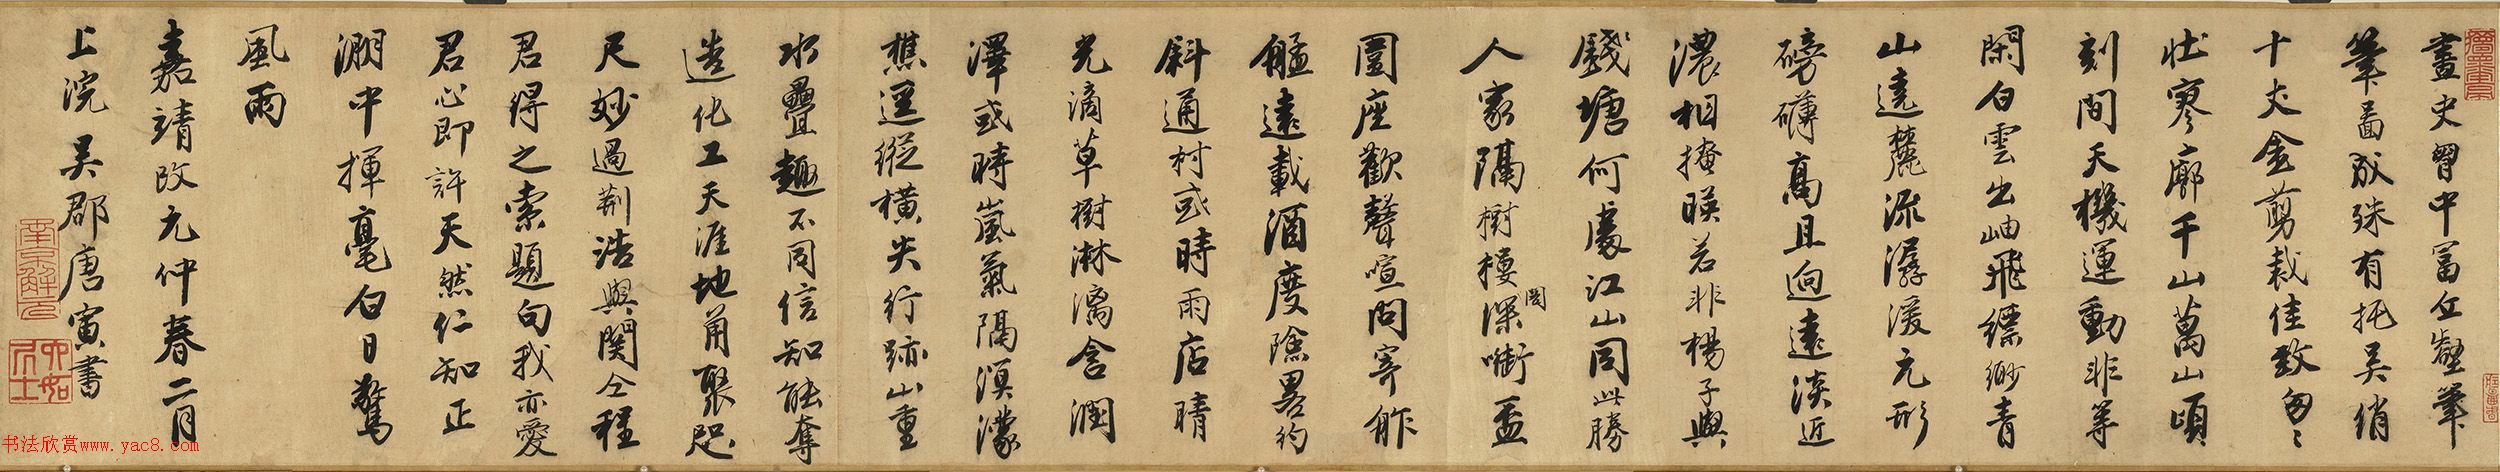 畫史胷中富丘壑筆
筆畵成殊有托吴綃
十丈金剪裁佳致匆〻
壮寥廓千山萬山頃
刻間天機運動非等
閑白雲出岫飛縹緲青
山遶麓流潺湲元形
磅礴髙且迥遠淡近
濃相掩暎若非楊子與
錢塘何處江山同此勝
人家隔樹樓深閣啣盃
圖座歡聲喧問寄舴
艋遠載酒度隂畧約
斜通村或時雨店晴
光滴草樹淋漓含潤
澤或時嵐氣隔溟濛
樵逕縱橫失行跡山重
水疊趣不同信知能奪
造化工天涯地角聚咫
尺妙過荆浩與関仝程
君得之索題句我亦愛
君心即許天然仁知正
淵中揮毫白日驚
風雨
嘉靖改元仲春二月
上浣吴郡唐寅書
南京解元
六如居士
书法欣赏www.yac8.com